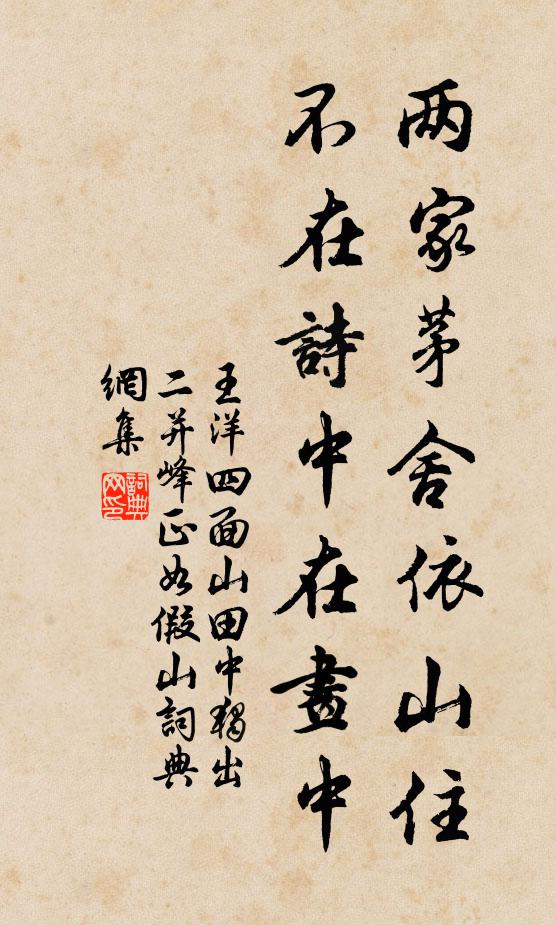 两家茅舍依山住
不在詩中在畫中
王洋四面山田中獨出
二并峰正如假山詞典
網集
詞典网印